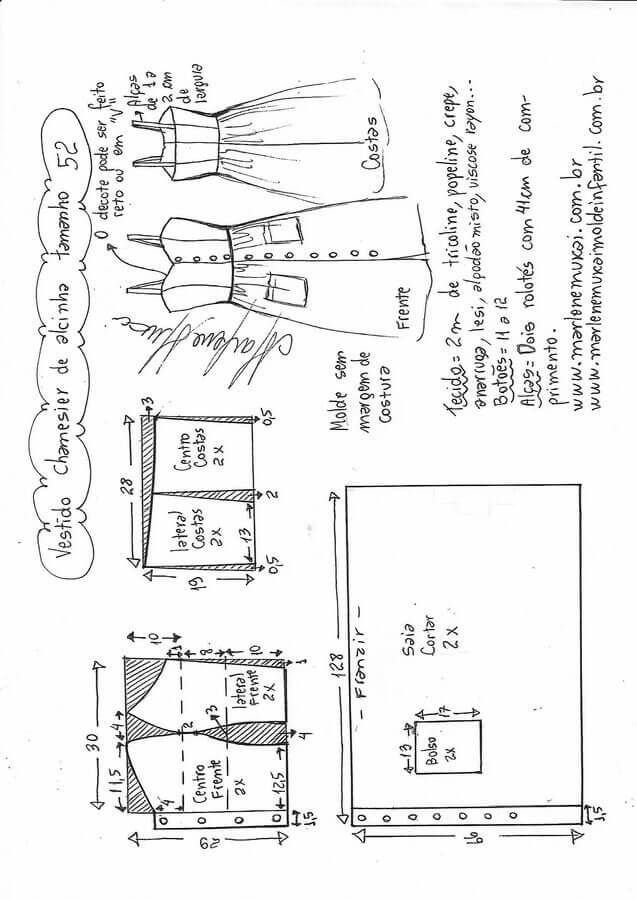 Vestido Chamesier de alcinha tamanho 52
O decote pode ser feito
reto ou em "V"
Alças
de 1 a
2 cm
de
largura
Costas
Frente
30
11,5
4
10
1
8
10
2
3
4
Centro
Frente
2x
lateral
Frente
2x
12,5
4
1
29
1,5
28
3
19
lateral
Costas
2x
Centro
Costas
2x
13
0,5
2
0,5
Molde sem
margem de
costura
128
- Franzir -
Saia
Cortar
2x
13
17
Bolso
2x
1,5
Tecido= 2m de tricoline, popeline, crepe,
anarruga, lesi, algodão misto, viscose rayon...
Botões= 11 a 12
Alças= Dois rolotés com 41cm de com-
primento.
www.marlenemukai.com.br
www.marlenemukaimoldeinfantil.com.br